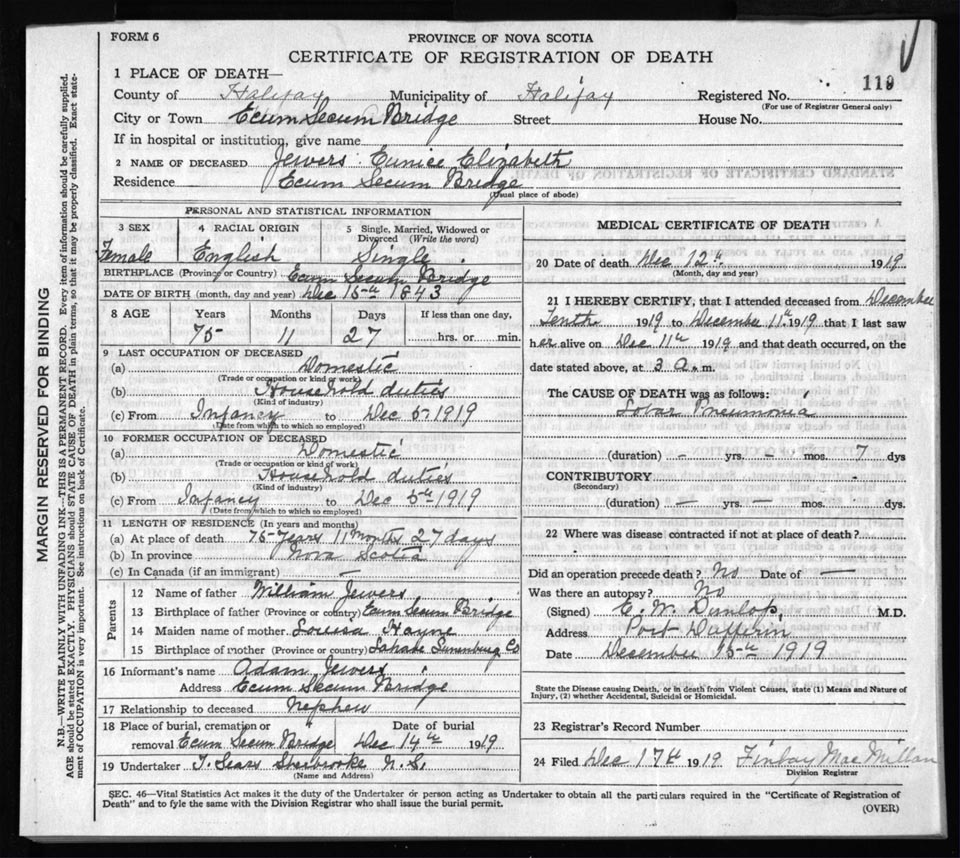 FORM 6
PROVINCE OF NOVA SCOTIA
CERTIFICATE OF REGISTRATION OF DEATH
119
1 PLACE OF DEATH—
County of Halifax Municipality of Halifax Registered No.
(For use of Registrar General only)
City or Town Ecum Secum Bridge Street House No.
If in hospital or institution, give name
2 NAME OF DECEASED Jewers Eunice Elizabeth
Residence Ecum Secum Bridge
(Usual place of abode)
PERSONAL AND STATISTICAL INFORMATION
3 SEX 4 RACIAL ORIGIN 5 Single, Married, Widowed or Divorced (Write the word)
Female English Single
BIRTHPLACE (Province or Country) Ecum Secum Bridge
DATE OF BIRTH (month, day and year) Dec 15th 1843
8 AGE Years Months Days If less than one day,
75 11 27 hrs. or min.
9 LAST OCCUPATION OF DECEASED
(a) Domestic
(Trade or occupation or kind of work)
(b) Household duties
(Kind of industry)
(c) From Infancy to Dec 5 1919
(Date from which to which so employed)
10 FORMER OCCUPATION OF DECEASED
(a) Domestic
(Trade or occupation or kind of work)
(b) Household duties
(Kind of industry)
(c) From Infancy to Dec 5th 1919
(Date from which to which so employed)
11 LENGTH OF RESIDENCE (In years and months)
(a) At place of death 75 Years 11 Months 27 days
(b) In province Nova Scotia
(c) In Canada (if an immigrant) —
Parents
12 Name of father William Jewers
13 Birthplace of father (Province or country) Ecum Secum Bridge
14 Maiden name of mother Louisa Hayne
15 Birthplace of mother (Province or country) Lunenburg Co
16 Informant's name Adam Jewers
Address Ecum Secum Bridge
17 Relationship to deceased Nephew
18 Place of burial, cremation or Date of burial
removal Ecum Secum Bridge Dec 14th 1919
19 Undertaker J. Sears Sherbrooke N.S.
(Name and Address)
MEDICAL CERTIFICATE OF DEATH
20 Date of death Dec 12th 1919
(Month, day and year)
21 I HEREBY CERTIFY, that I attended deceased from December
Tenth 1919 to December 11th 1919 that I last saw
her alive on Dec 11th 1919 and that death occurred, on the
date stated above, at 3 a.m.
The CAUSE OF DEATH was as follows:
Lobar Pneumonia
(duration) — yrs. — mos. 7 dys
CONTRIBUTORY
(Secondary)
(duration) — yrs. — mos. — dys.
22 Where was disease contracted if not at place of death?
Did an operation precede death? No Date of —
Was there an autopsy? No
(Signed) E. W. Dunlop M.D.
Address Port Dufferin
Date December 15th 1919
State the Disease causing Death, or in death from Violent Causes, state (1) Means and Nature of
Injury, (2) whether Accidental, Suicidal or Homicidal.
23 Registrar's Record Number
24 Filed Dec 17th 1919 Finlay MacMillan
Division Registrar
SEC. 46—Vital Statistics Act makes it the duty of the Undertaker or person acting as Undertaker to obtain all the particulars required in the "Certificate of Registration of
Death" and to fyle the same with the Division Registrar who shall issue the burial permit.
(OVER)
MARGIN RESERVED FOR BINDING
N.B.—WRITE PLAINLY WITH UNFADING INK—THIS IS A PERMANENT RECORD. Every item of information should be carefully supplied.
AGE should be stated EXACTLY. PHYSICIANS should STATE CAUSE OF DEATH in plain terms, so that it may be properly classified. Exact state-
ment of OCCUPATION is very important. See instructions on back of Certificate.